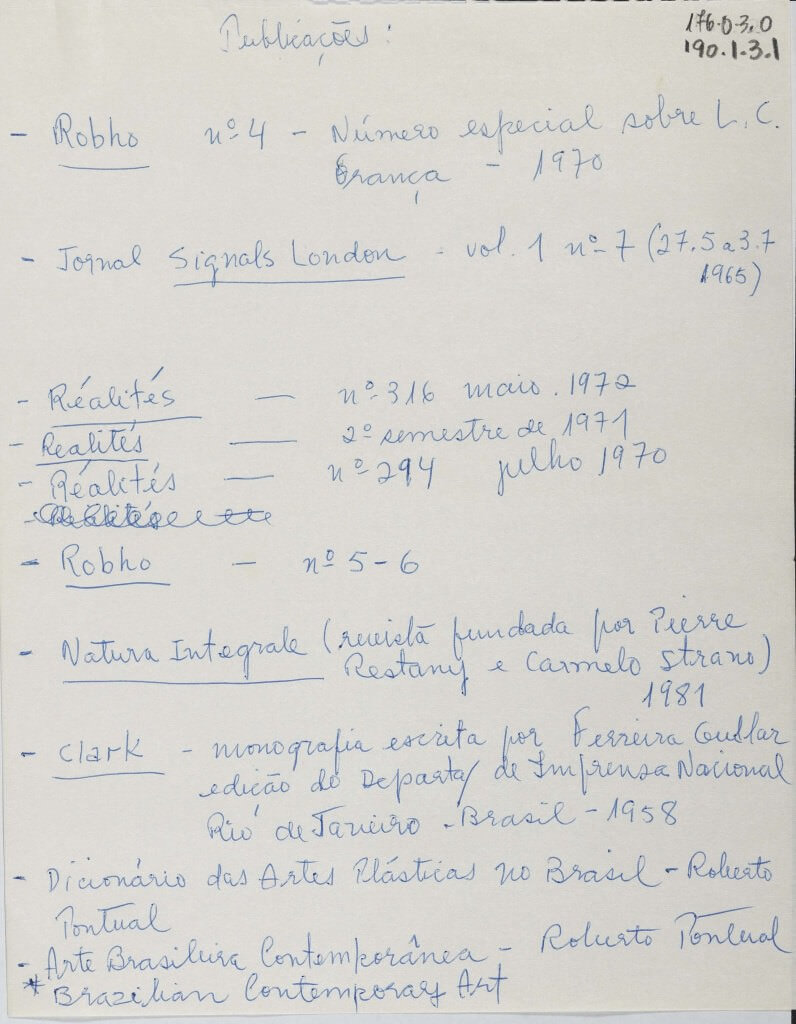 Publicações:
176.03.0
190.1.3.1
- Robho nº 4 - Número especial sobre L. C.
França - 1970
- Jornal Signals London - vol. 1 nº 7 (27.5 a 3.7
1965)
- Réalités — nº 316 maio. 1972
- Realités — 2º semestre de 1971
- Réalités — nº 294 julho 1970
- Robho — nº 5-6
- Natura Integrale (revista fundada por Pierre
Restany e Carmelo Strano)
1981
- Clark - monografia escrita por Ferreira Gullar
edição do Departa/ de Imprensa Nacional
Rio de Janeiro - Brasil - 1958
- Dicionário das Artes Plásticas no Brasil - Roberto
Pontual
- Arte Brasileira Contemporânea - Roberto Pontual
* Brazilian Contemporary Art